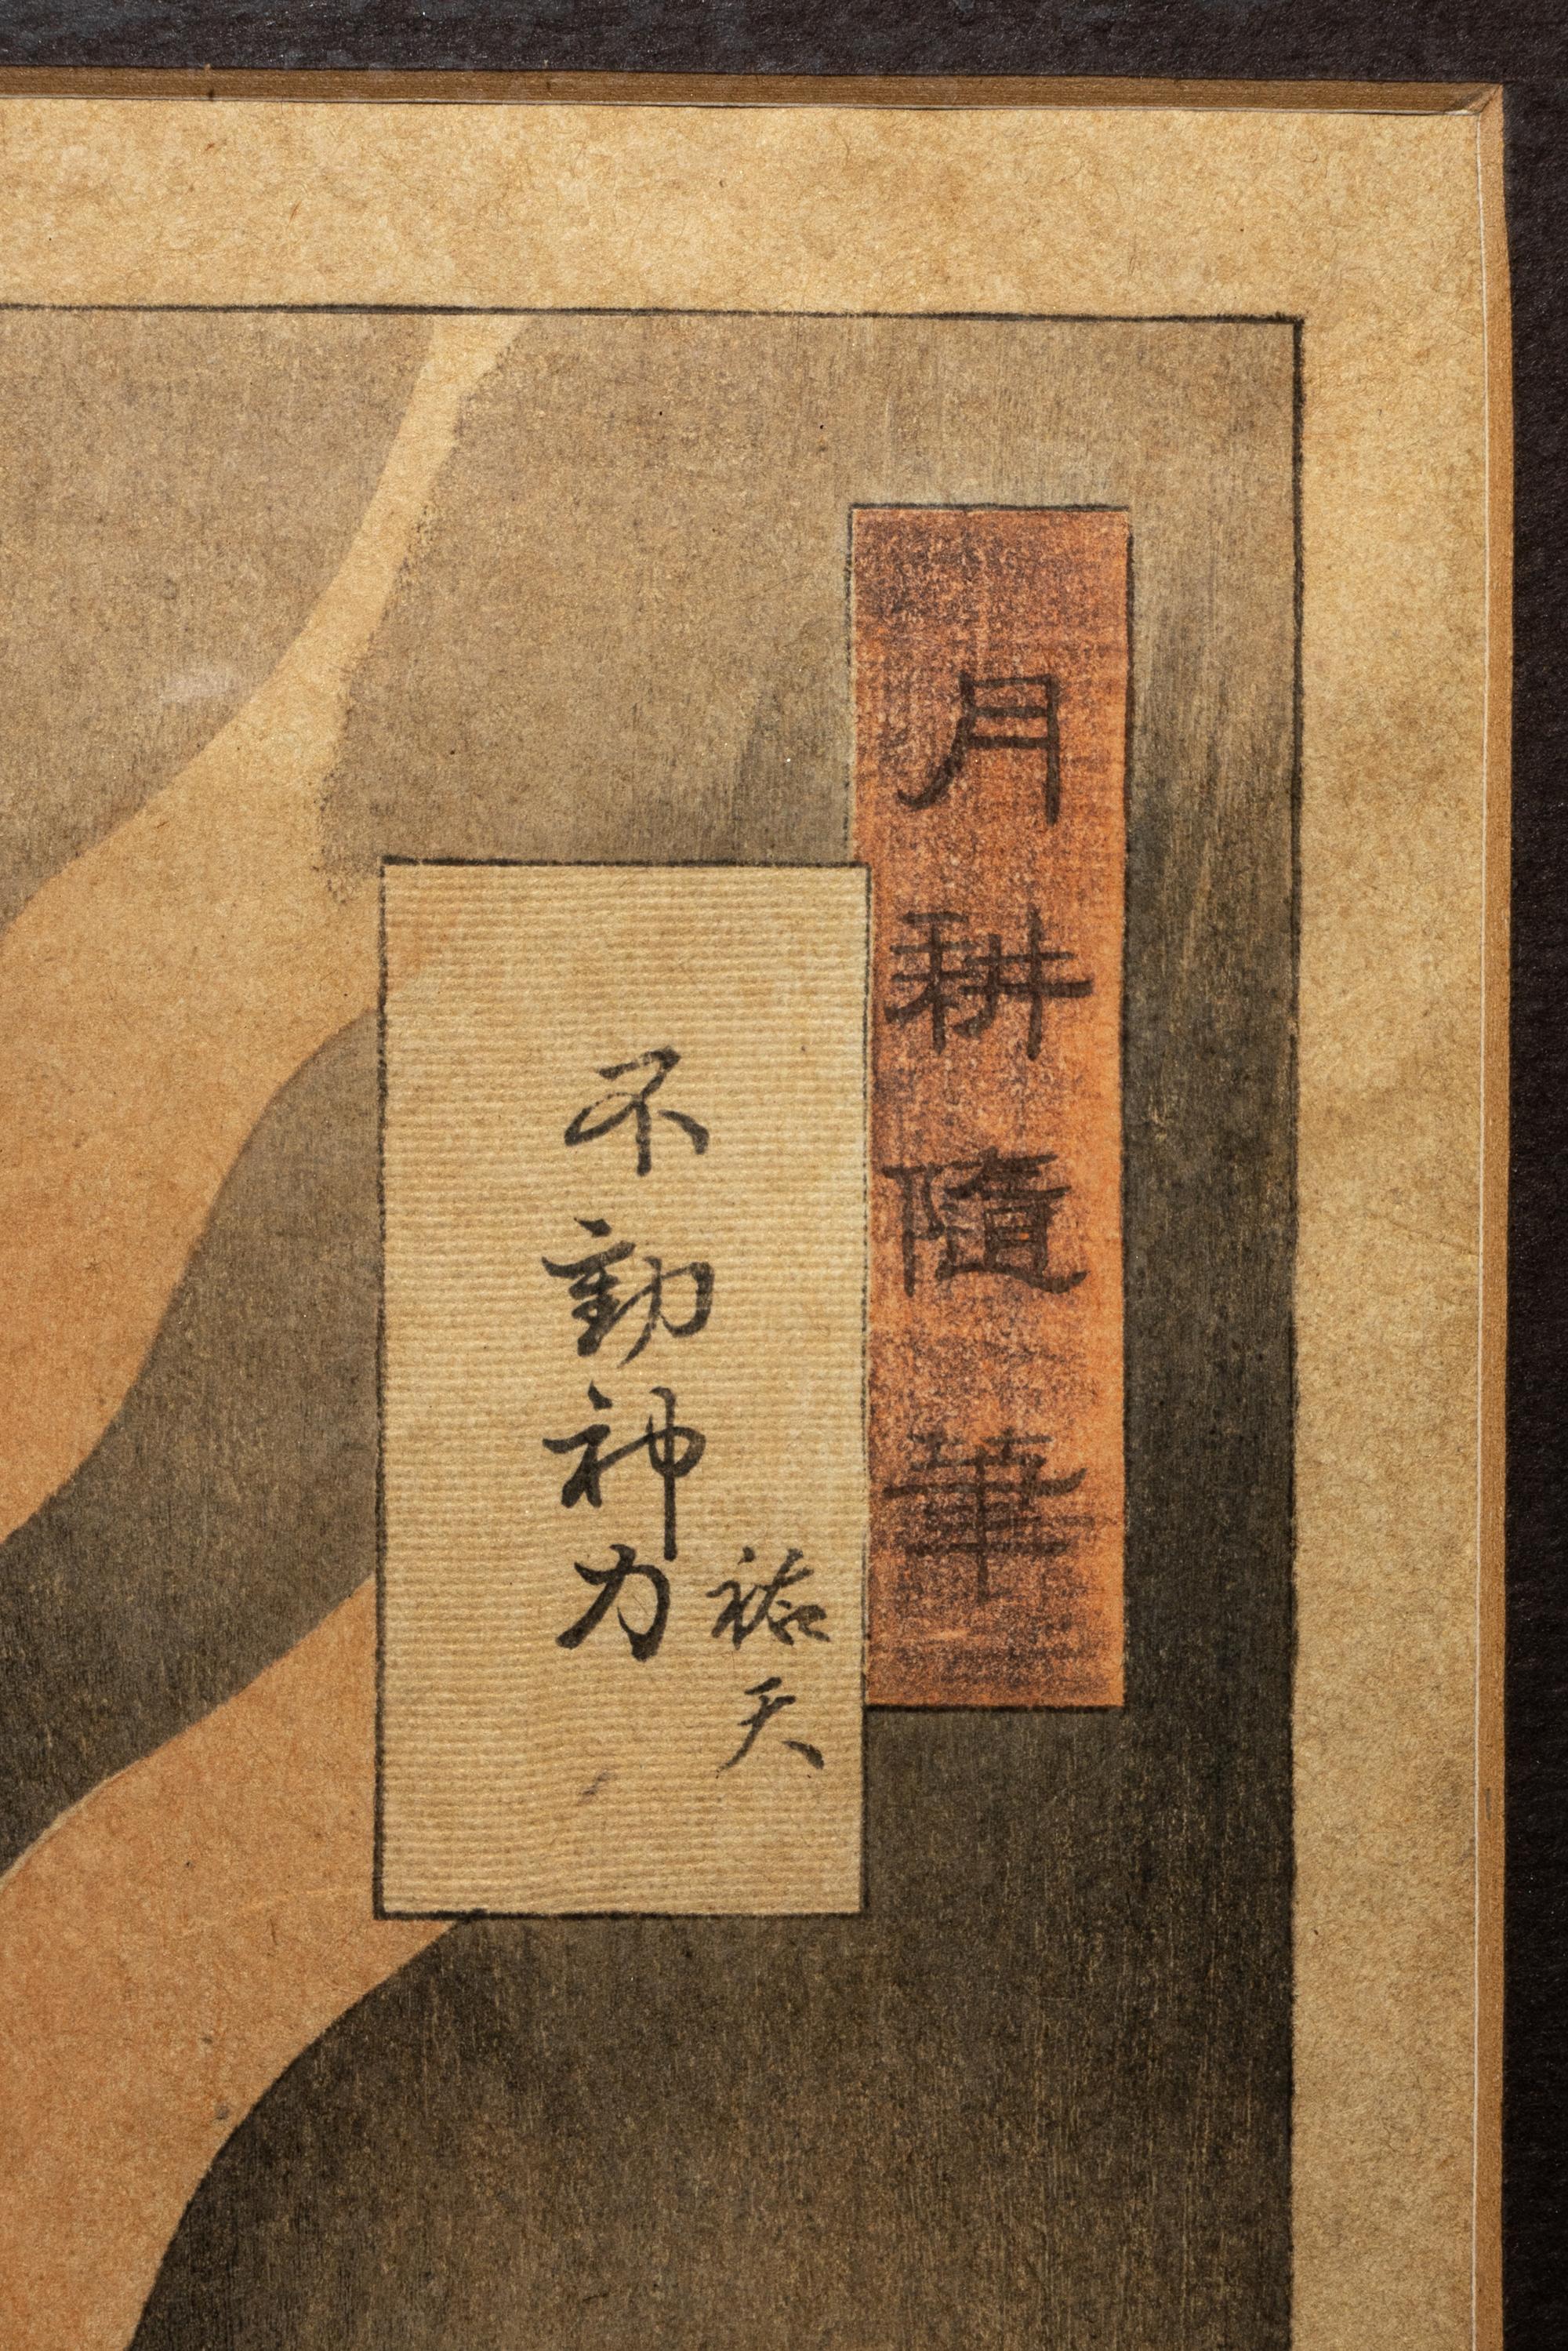 月耕隨筆
祐天
不動神力